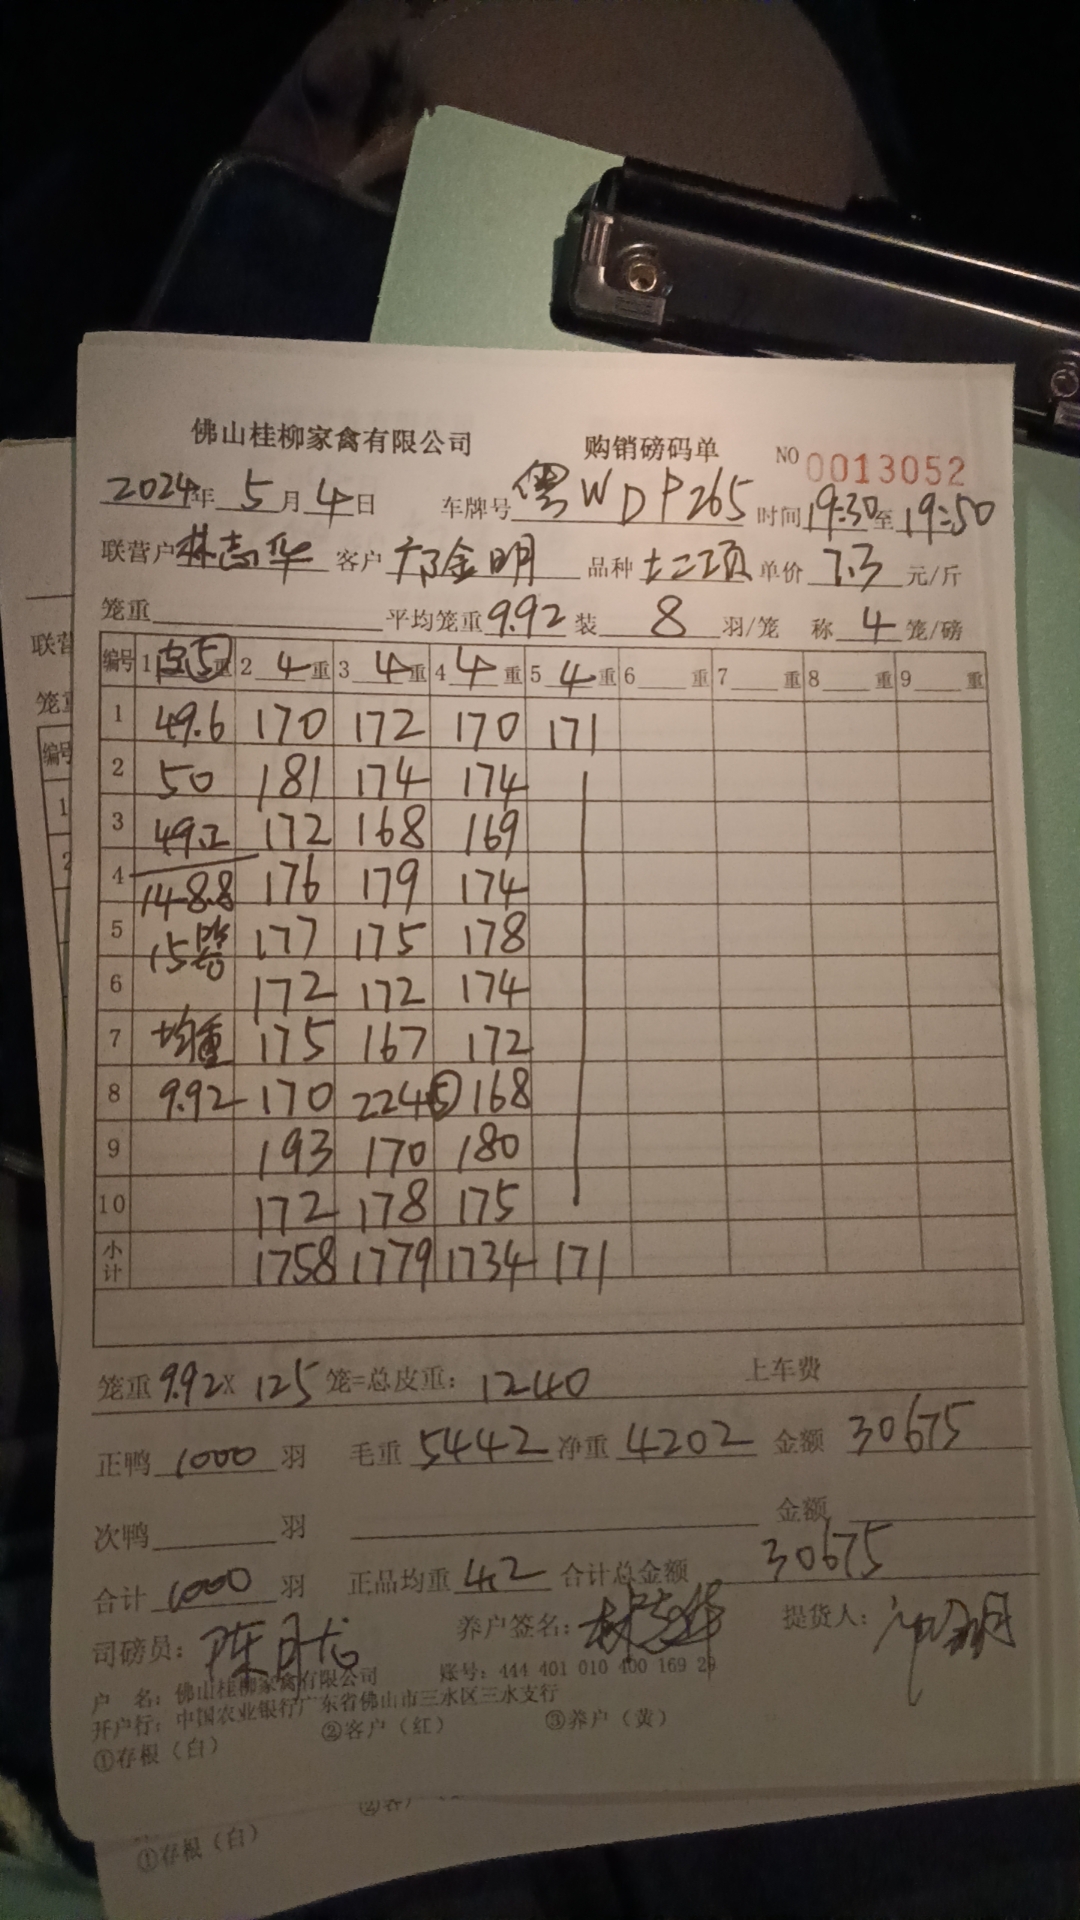 佛山桂柳家禽有限公司 购销磅码单 NO 0013052
2024年 5月 4日 车牌号 粤WDP265 时间 19:30至 19:50
联营户 林志华 客户 金明 品种 单价 7.3 元/斤
笼重 平均笼重 9.92 装 8 羽/笼 称 4 笼/磅
编号 1 5 重 2 4 重 3 4 重 4 4 重 5 4 重 6 重 7 重 8 重 9 重
1 49.6 170 172 170 171
2 50 181 174 174
3 49.2 172 168 169
4 148.8 176 179 174
5 15笼 177 175 178
6 172 172 174
7 均重 175 167 172
8 9.92 170 224⑤ 168
9 193 170 180
10 172 178 175
小计 1758 1779 1734 171
笼重 9.92× 125 笼=总皮重: 1240 上车费
正鸭 1000 羽 毛重 5442 净重 4202 金额 30675
次鸭 羽 金额
合计 1000 羽 正品均重 4.2 合计总金额 30675
司磅员: 陈 养户签名: 林志华 提货人:
户 名: 佛山桂柳家禽有限公司 账号: 444 401 010 400 169 2
开户行: 中国农业银行广东省佛山市三水区三水支行
①存根(白) ②客户(红) ③养户(黄)
联营
笼重
编号
1
2
②客户
①存根(白)